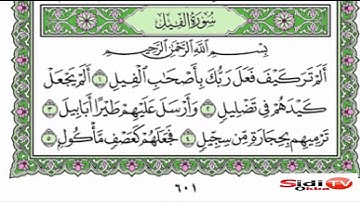 سُورَةُ الفِيلِ
بِسْمِ اللَّهِ الرَّحْمَٰنِ الرَّحِيمِ
أَلَمْ تَرَ كَيْفَ فَعَلَ رَبُّكَ بِأَصْحَابِ الْفِيلِ ١ أَلَمْ يَجْعَلْ
كَيْدَهُمْ فِي تَضْلِيلٍ ٢ وَأَرْسَلَ عَلَيْهِمْ طَيْرًا أَبَابِيلَ ٣
تَرْمِيهِم بِحِجَارَةٍ مِّن سِجِّيلٍ ٤ فَجَعَلَهُمْ كَعَصْفٍ مَّأْكُولٍ ٥
٦٠١
Sidi TV
Okba